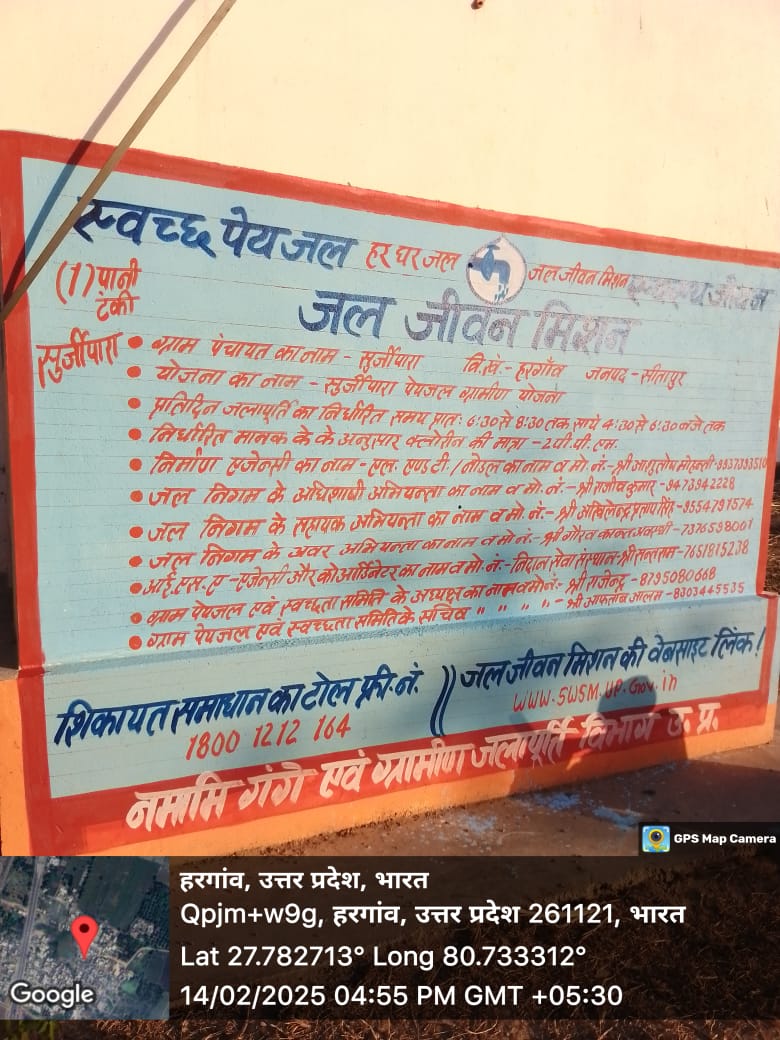 स्वच्छ पेयजल हर घर जल जल जीवन मिशन स्वस्थ जीवन
(1) पानी टंकी
जल जीवन मिशन
सुर्जीपारा
• ग्राम पंचायत का नाम - सुर्जीपारा वि.खं.- हरगाँव जनपद - सीतापुर
• योजना का नाम - सुर्जीपारा पेयजल ग्रामीण योजना
• प्रतिदिन जलापूर्ति का निर्धारित समय प्रातः 6:30 से 8:30 तक सायं 4:30 से 6:30 बजे तक
• निर्धारित मानक के के अनुसार क्लोरीन की मात्रा - 2 पी.पी.एम.
• निर्माण एजेन्सी का नाम - एल. एण्ड टी / नोडल का नाम व मो. नं.- श्री आशुतोष मोहन्ती - 9937393510
• जल निगम के अधिशाषी अभियन्ता का नाम व मो. नं.- श्री राजीव कुमार - 9473942228
• जल निगम के सहायक अभियन्ता का नाम व मो. नं.- श्री अखिलेन्द्र प्रताप सिंह - 9554791574
• जल निगम के अवर अभियन्ता का नाम व मो. नं.- श्री गौरव कान्त अवस्थी - 7376598001
• आई.एस.ए - एजेन्सी और कोआर्डिनेटर का नाम व मो. नं.- निदान सेवा संस्थान - श्री सन्तराम - 7651815238
• ग्राम पेयजल एवं स्वच्छता समिति के अध्यक्ष का नाम व मो नं.- श्री राजेन्द्र - 8795080668
• ग्राम पेयजल एवं स्वच्छता समिति के सचिव " " " " - श्री आफताब आलम - 8303445535
शिकायत समाधान का टोल फ्री. नं. // जल जीवन मिशन की वेबसाइट लिंक !
1800 1212 164 www.swsm.up.gov.in
नमामि गंगे एवं ग्रामीण जलापूर्ति विभाग उ. प्र.
GPS Map Camera
हरगांव, उत्तर प्रदेश, भारत
Qpjm+w9g, हरगांव, उत्तर प्रदेश 261121, भारत
Lat 27.782713° Long 80.733312°
14/02/2025 04:55 PM GMT +05:30
Google